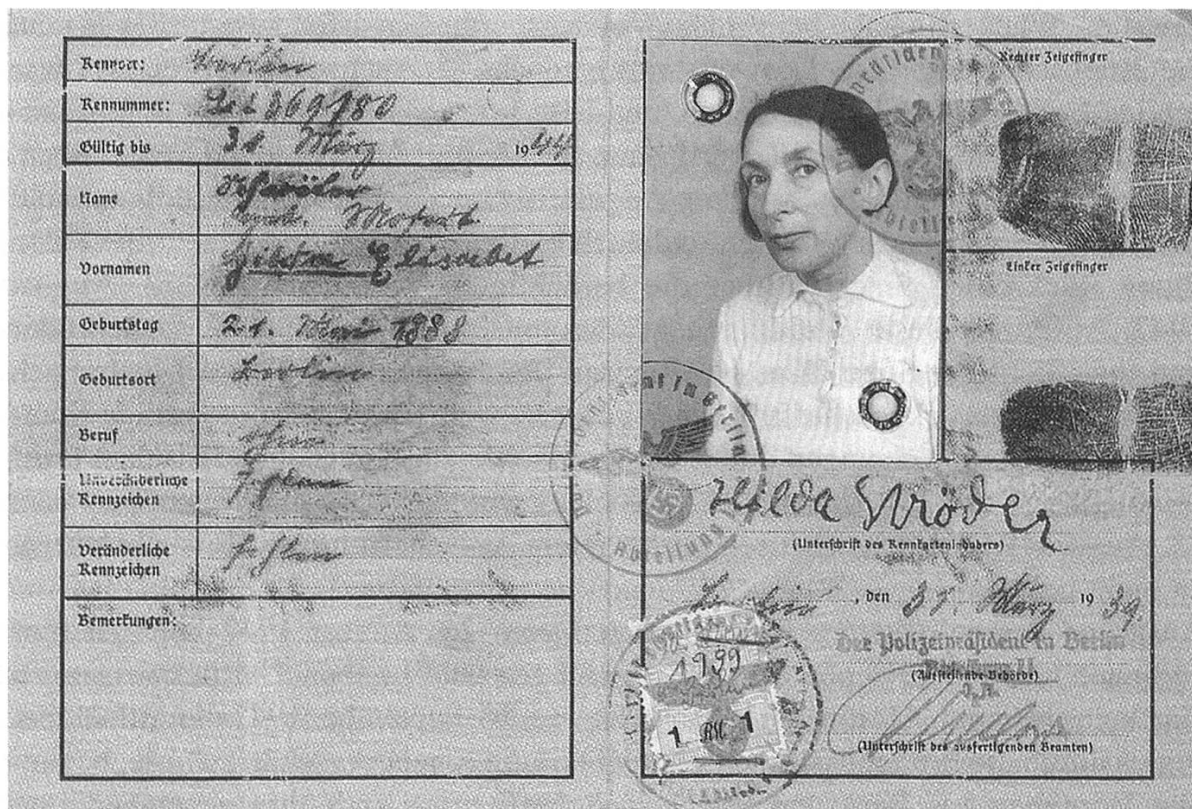 Kennort: Berlin
Kennummer: 369180
Gültig bis 31. März 1944
Name
geb.
Vornamen Hilda Elisabet
Geburtstag 21. Mai 1888
Geburtsort Berlin
Beruf ohne
Unveränderliche Kennzeichen fehlen
Veränderliche Kennzeichen fehlen
Bemerkungen:
Rechter Zeigefinger
Linker Zeigefinger
Hilda
(Unterschrift des Kennkarteninhabers)
Berlin, den 31. März 1939.
Der Polizeipräsident in Berlin
Abteilung II
(Ausstellende Behörde)
J.A.
(Unterschrift des ausfertigenden Beamten)
1 RM 1